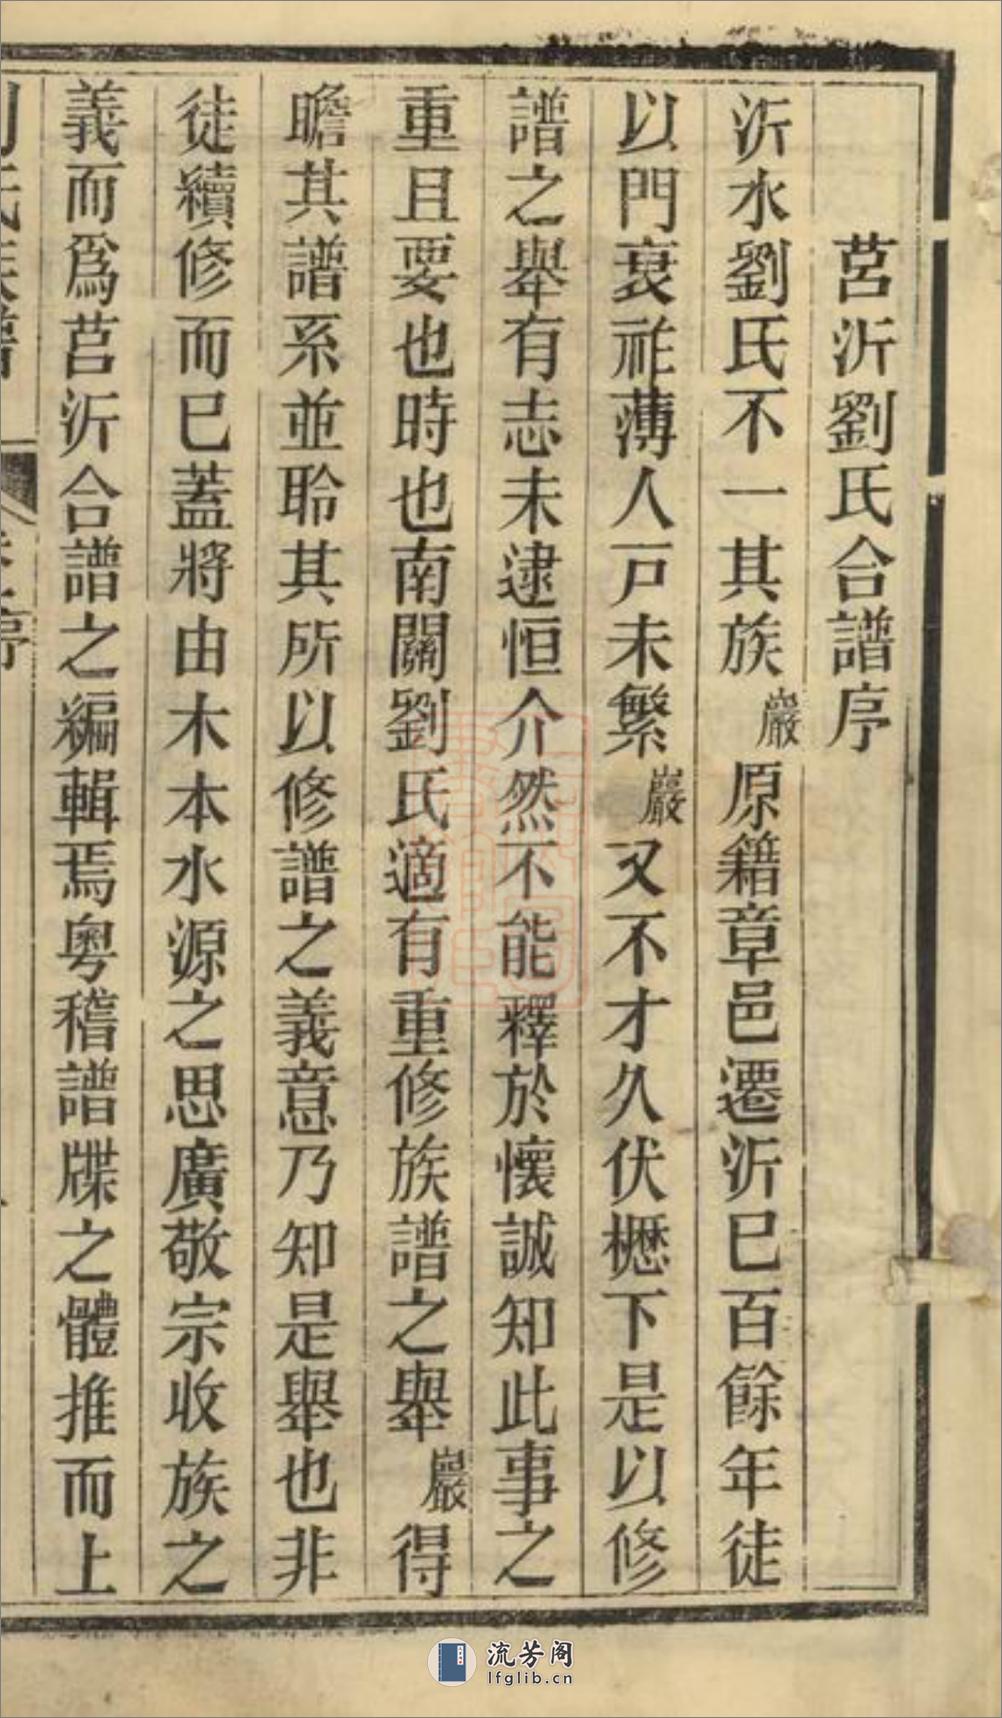 莒沂劉氏合譜序
沂水劉氏不一其族巖原籍章邑遷沂巳百餘年徒
以門衰祚薄人戸未繁巖又不才久伏櫪下是以修
譜之舉有志未逮恒介然不能釋於懷誠知此事之
重且要也時也南關劉氏適有重修族譜之舉巖得
瞻其譜系並聆其所以修譜之義意乃知是舉也非
徒續修而巳蓋將由木本水源之思廣敬宗收族之
義而爲莒沂合譜之編輯焉粤稽譜牒之體推而上
流芳阁
lfglib.cn